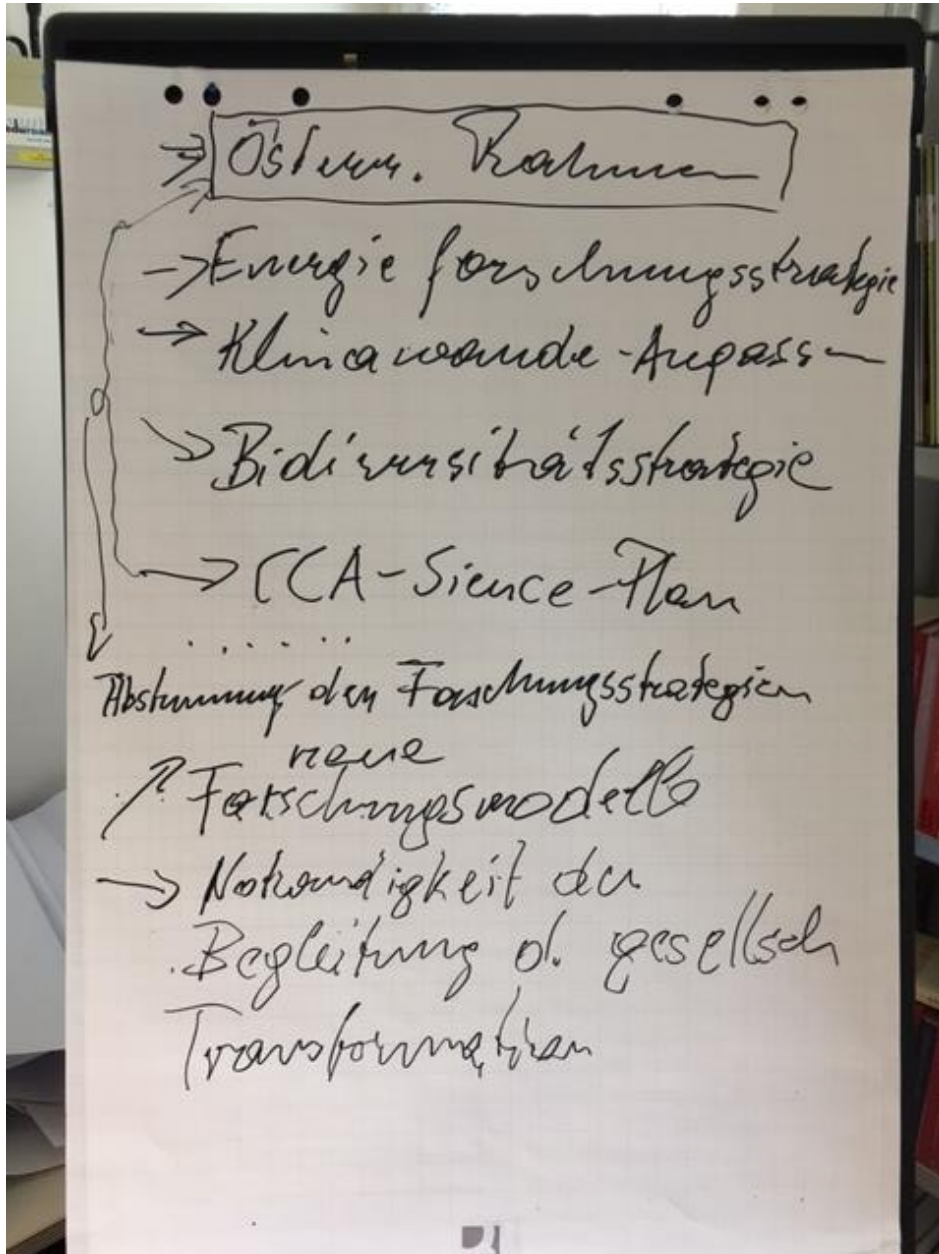 → Österr. Rahmen
→ Energieforschungsstrategie
→ Klimawande-Anpass
→ Bidiversitätsstrategie
→ CCA-Sience-Plan
......
Abstimmung der Forschungsstrategien
neue
↗ Forschungsmodelle
→ Notwendigkeit der
Begleitung d. gesellsch
Transformation